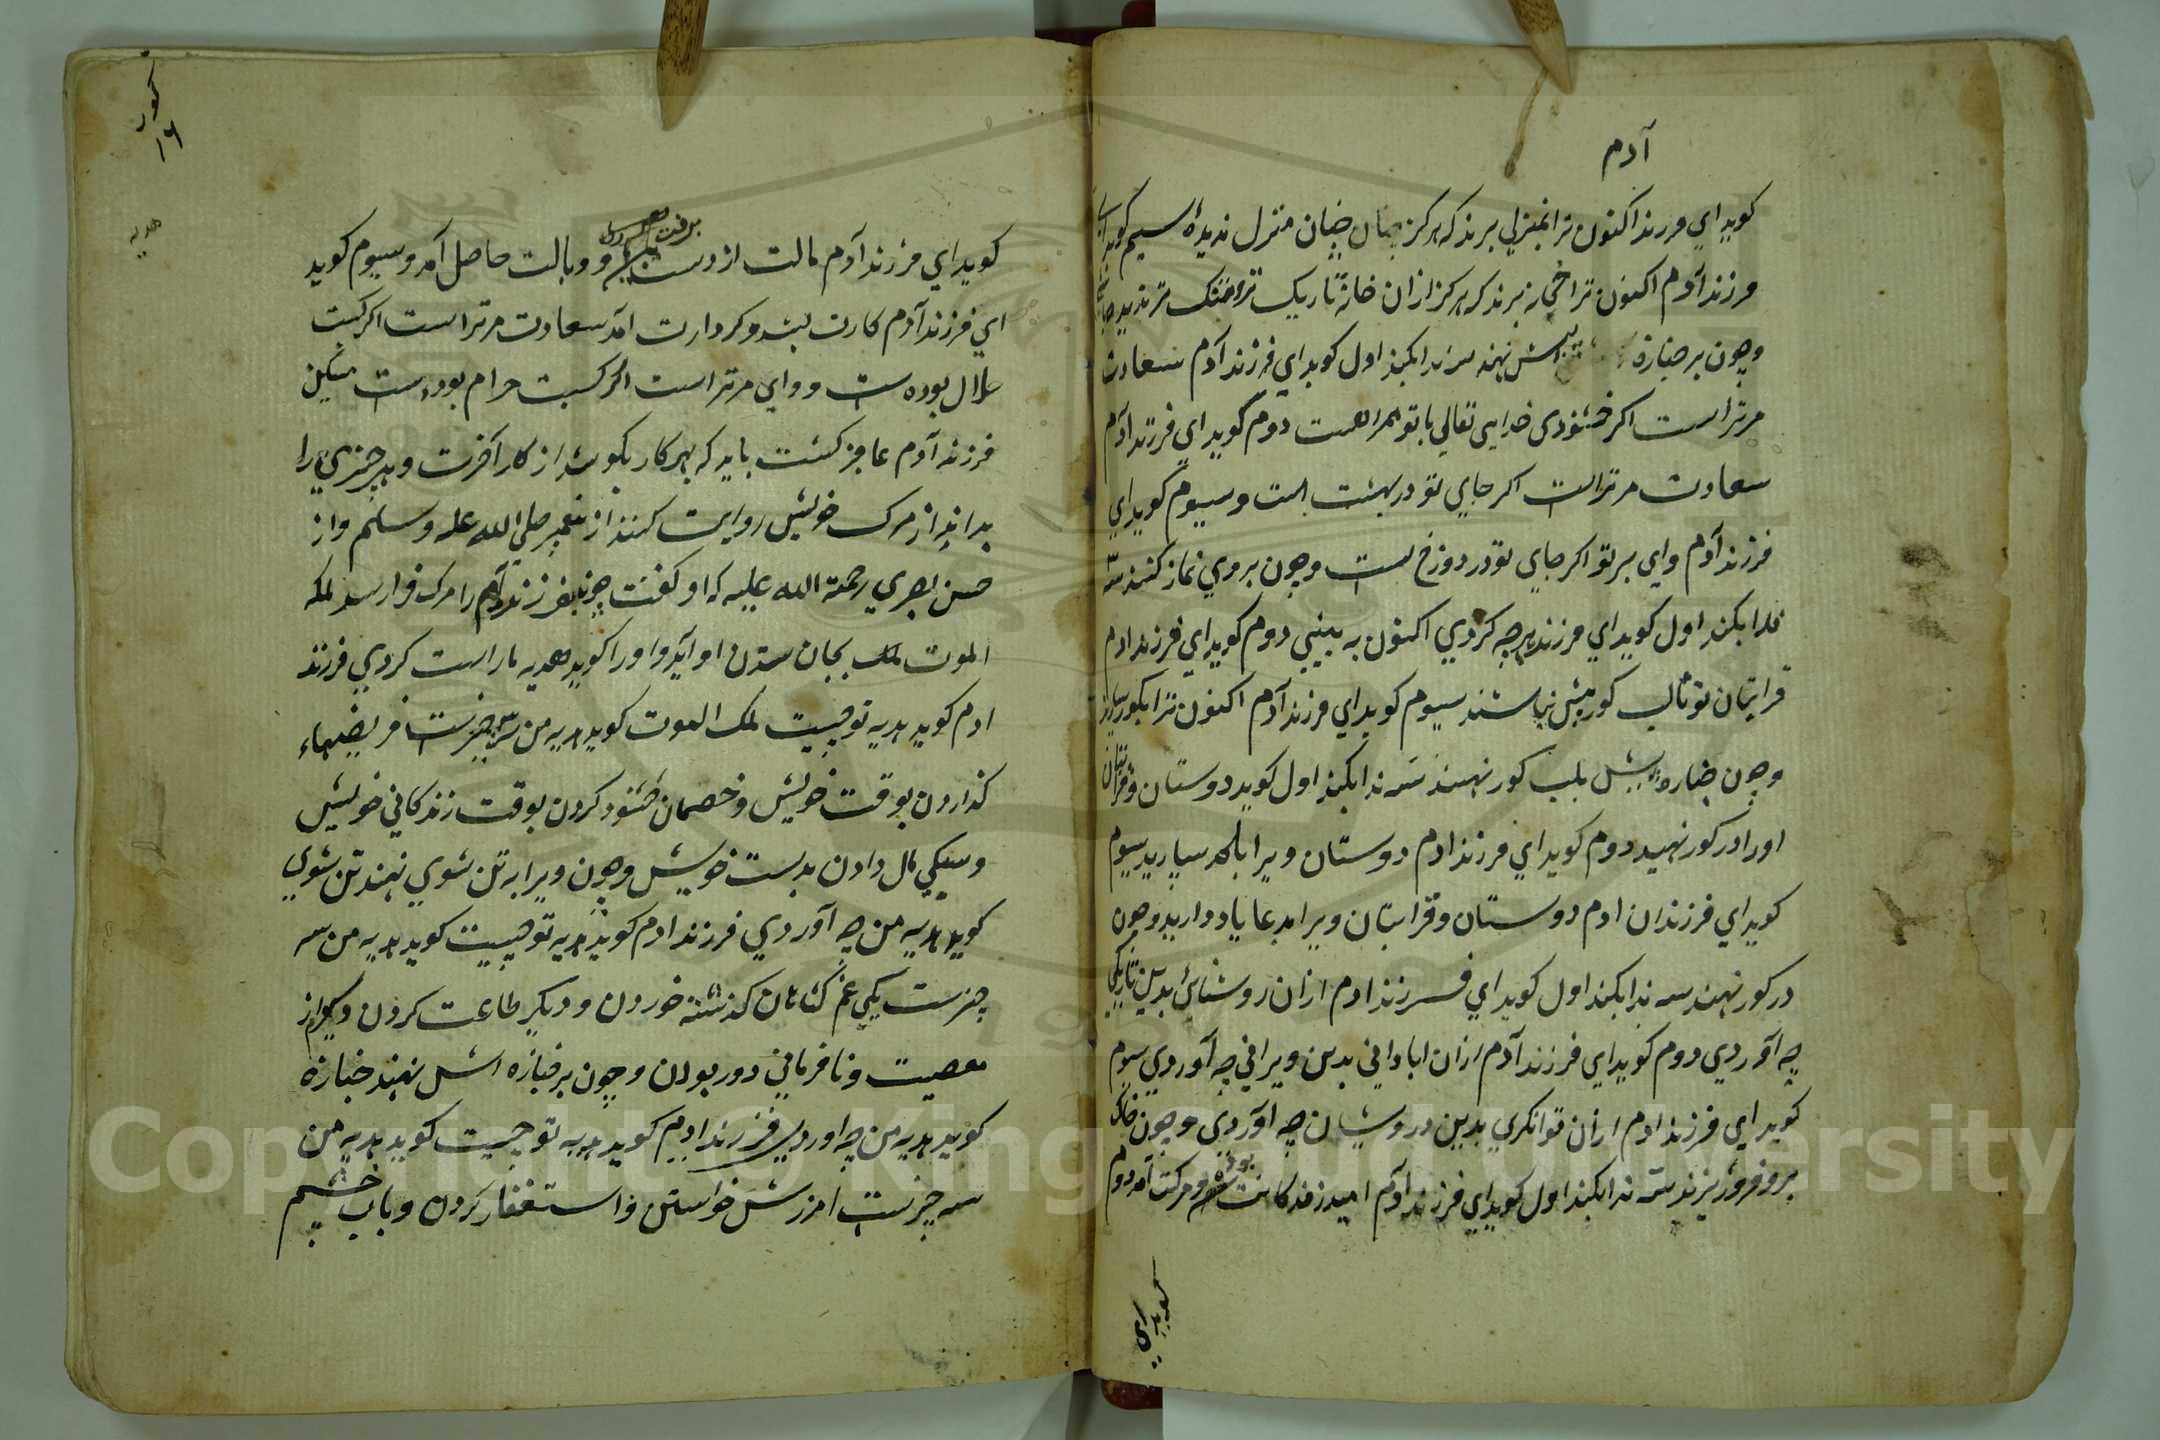 آدم
كويد اي فرزند اكنون ترا بمنزلي برند كه هركز چنان منزل نديدۀ سيم كويد اي
فرزند آدم اكنون ترا بخانه برند كه هركز ازان خانۀ تاريك تر و تنك تر نديد
و چون بر جنازه پيش نهند سه ندا بكند اول كويد اي فرزند آدم سعادت
مر تراست اكر خشنودي خداي تعالي با تو همراهست دوم كويد اي فرزند آدم
سعادت مر تراست اكر جاي تو در بهشت است و سيوم كويد اي
فرزند آدم واي بر تو اكر جاي تو در دوزخ است و چون بروي نماز كنند سه
ندا بكند اول كويد اي فرزند هرچه كردي اكنون به بيني دوم كويد اي فرزند ادم
قرابتان تو تا لب كور بيش نباشند سيوم كويد اي فرزند آدم اكنون ترا بكور
و چون جنازه پيش بلب كور نهند سه ندا بكند اول كويد دوستان و قرابتان
او را در كور نهيد دوم كويد اي فرزند ادم دوستان ويرا بلحد سپاريد سيوم
كويد اي فرزندان ادم دوستان و قرابتان ويرا بدعا ياد داريد و چون
در كور نهند سه ندا بكند اول كويد اي فرزند ادم ازان روشنائي بدين تاريكي
چه آوردي دوم كويد اي فرزند آدم ازان اباداني بدين ويراني چه آوردي سيوم
كويد اي فرزند ادم ازان توانكري بدين درويشان چه آوردي و چون خاك
برو فرو ريزند سه ندا بكند اول كويد اي فرزند آدم اميد زندكانيت بود و مركت آمد دوم
كويد اي
كويد اي فرزند آدم مالت از دست برفت و وبالت حاصل آمد و سيوم كويد
اي فرزند آدم كارت بشد و كردارت آمد سعادت مر تراست اكر كسبت
حلال بوده است و واي مر تراست اكر كسبت حرام بوده است مسكين
فرزند آدم عاجز كشت بايد كه بهر كار بكوشد از كار آخرت و هر چيزي را
بداند از مرك خويش روايت كنند از پيغمبر صلي الله عليه وسلم و از
حسن بصري رحمة الله عليه كه او كفت چون فرزند آدم را مرك فرا رسد ملكه
الموت ملك بجان ستدن او آيد و او را كويد هديه ما راست كردي فرزند
ادم كويد هديه تو چيست ملك الموت كويد هديه من سه چيزست فريضهاء
كذاردن بوقت خويش و خصمان خشنود كردن بوقت زندكاني خويش
و سيكي مال دادن بدست خويش و چون ويرا به تن شوي نهند تن شوي
كويد هديه من چه آوردي فرزند ادم كويد هديه تو چيست كويد هديه من سه
چيزست يكي غم كناهان كذشته خوردن و ديكر طاعت كردن و ديكر از
معصيت و نافرماني دور بودن و چون بر جنازه اش نهند جنازه
كويد هديه من چه اوردي فرزند ادم كويد هديه تو چيست كويد هديه من
سه چيزست امرزش خواستن و استغفار كردن و باب چشم
هديه
Copyright © King Saud University